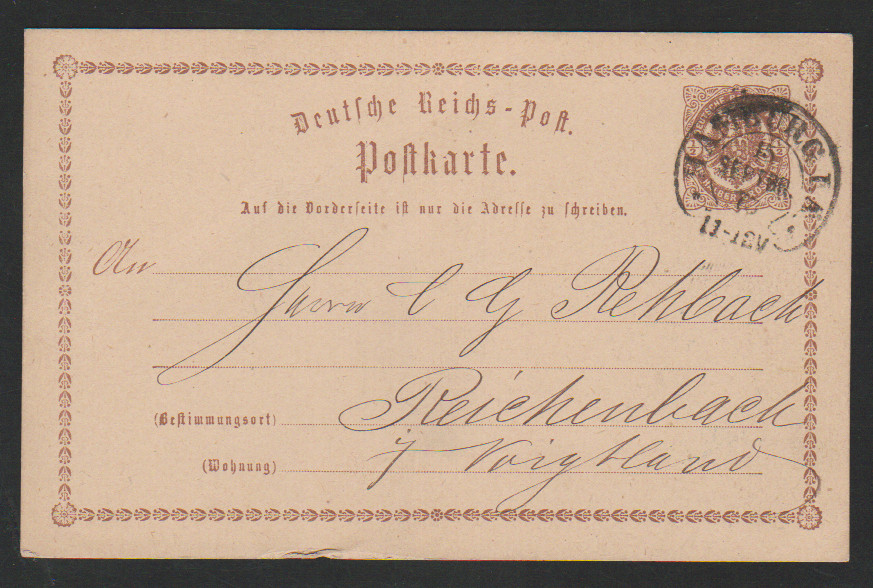 Deutsche Reichs-Post.
Postkarte.
HAMBURG I.A.
SEPTBR.
11-12V
Auf die Vorderseite ist nur die Adresse zu schreiben.
An
Herrn C G Rehbach
(Bestimmungsort) Reichenbach
(Wohnung) i/ Voigtland